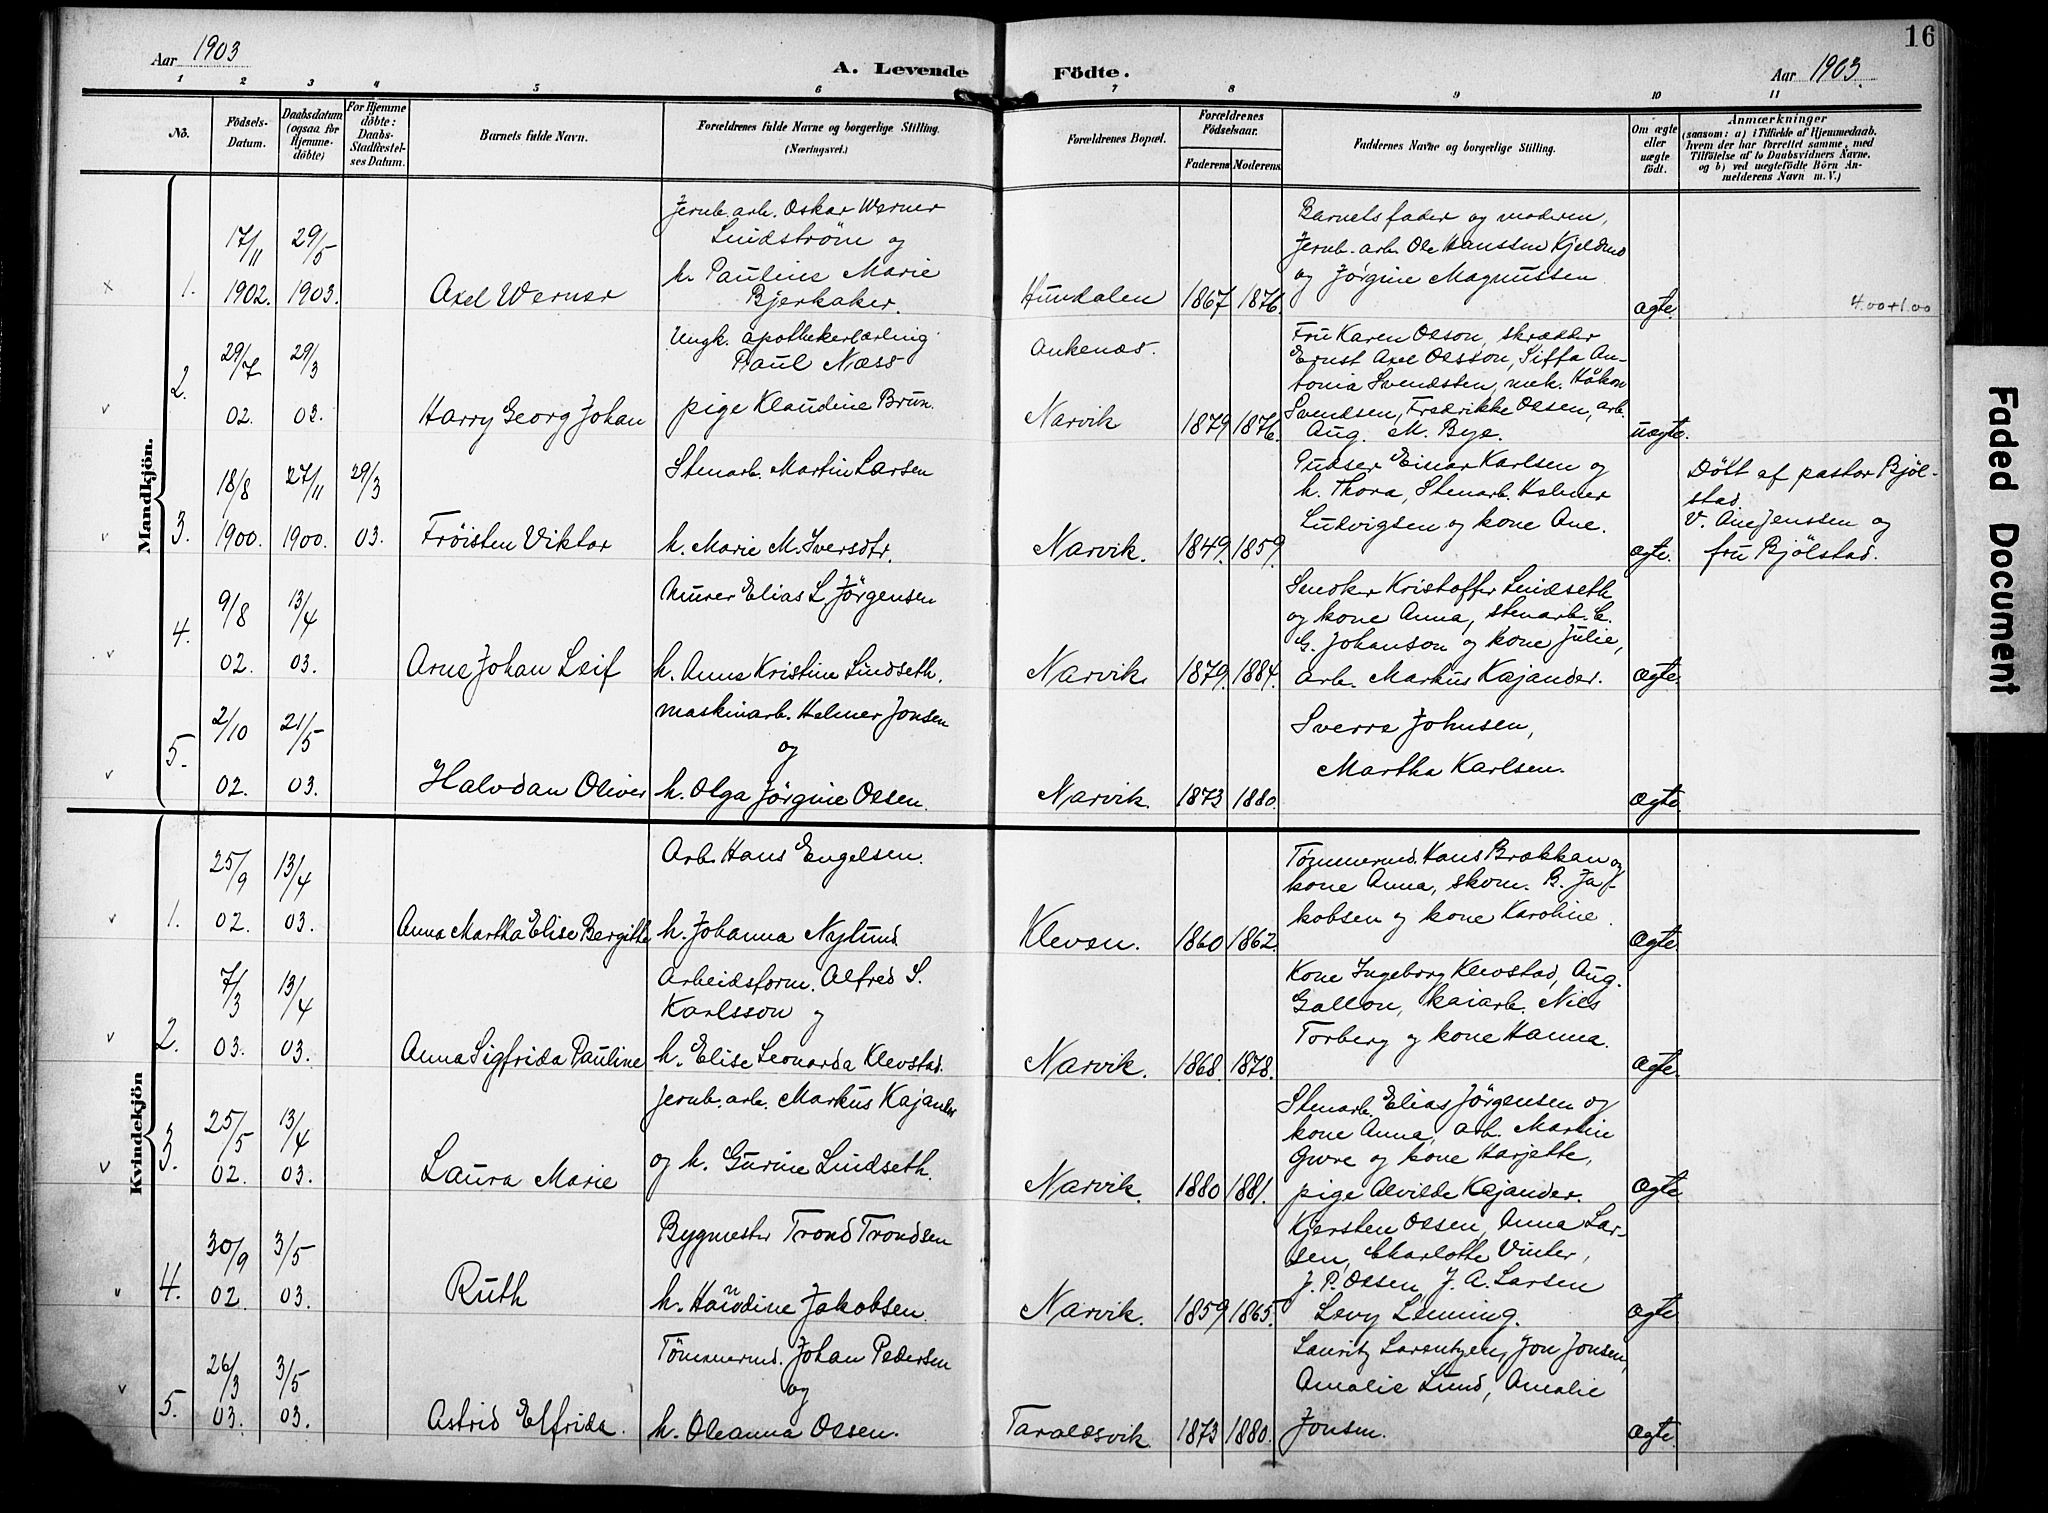 16
Aar 1903
A. Levende Födte.
Aar 1903.
1 2 3 4 5 6 7 8 9 10 11
No.
Fødsels-
Datum.
Daabsdatum
(ogsaa for
Hjemme-
døbte)
For Hjemme
döbte:
Daabs-
Stadfæstel-
ses Datum.
Barnets fulde Navn.
Forældrenes fulde Navne og borgerlige Stilling.
(Næringsvei.)
Forældrenes Bopæl.
Forældrenes
Födselsaar.
Faderens Moderens
Faddernes Navne og borgerlige Stilling.
Om ægte
eller
uægte
födt.
Anmærkninger
(saasom: a) i Tilfælde af Hjemmedaab,
hvem der har forrettet samme, med
Tilföielse af to Daabsvidners Navne,
og b) ved uægtefödte Börn An-
melderens Navn m. V.)
Mandkjön.
1.
17/11 29/5
1902. 1903.
Axel Werner
Jernb. arb. Oskar Werner
Lindström og
h. Pauline Marie
Bjerkaker.
Hundalen
1867 1876
Barnets fader og moderen,
Jernb. arb. Ole Hanssen
og Jørgine Magnussen
ægte.
4.00+1.00
2.
29/7 29/3
02. 03.
Harry Georg Johan
Ungk. apothekerlærling
Paul Næss
pige Klaudine Brun.
Ankenæs.
Narvik
1879 1876.
Fru Karen Olson, skrædder
Ernst Axel Olsson, Siffa An-
tonia Svendsten, mek. Håkon
Svendsen, Fredrikke Olsen, arb.
Aug. M. Bye.
uægte.
3.
18/8 27/11 29/3
1900. 1900. 03.
Frøisten Viktor
Stenarb. Martin Larsen
h. Marie M. Iversdtr.
Narvik.
1849. 1859.
Pudser Einar Karlsen og
h. Thora, Stenarb. Halmer
Ludvigsen og kone Ane.
ægte.
Døbt af pastor Bjöl-
stad.
V. Ane Jenssen og
fru Bjölstad.
4.
9/8 13/4
02. 03.
Arne Johan Leif
Murer Elias L. Jörgensen
h. Anna Kristine Lindseth.
Narvik.
1879. 1884.
Snedker Kristoffer Lindseth
og kone Anna, stenarb. C.
G. Johanson og kone Julie,
arb. Markus Kajander.
Ægte
5.
2/10 21/5
02. 03.
Halvdan Oliver
maskinarb. Helmer Jonsen
og
h. Olga Jörgine Olsen.
Narvik.
1873 1880.
Sverre Johnsen,
Martha Karlsen.
Ægte
Kvindekjön
1.
25/9 13/4
02. 03.
Anna Martha Elise Bergitte
Arb. Hans Engelsen.
h. Johanna Nylund
Kleven.
1860 1862.
Tømmermd. Hans Brækkan og
kone Anna, skom. B. Ja-
kobsen og kone Karoline.
Ægte
2.
7/3 13/4
03. 03.
Anna Sigfrida Pauline
Arbeidsform. Alfred S.
Karlsson og
h. Elise Leonarda Klevstad.
Narvik.
1868. 1878.
Kone Ingeborg Klevstad, Aug.
Gallon, kaiarb. Nils
Torberg og kone Hanna.
Ægte.
3.
25/5 13/4
02. 03.
Laura Marie
Jernb. arb. Markus Kajander
og h. Gurine Lindseth.
Narvik.
1880 1881.
Stenarb. Elias Jörgensen og
kone Anna, arb. Martin
og kone Harjette,
pige Alvilde Kajander.
Ægte
4.
30/9 3/5
02. 03.
Ruth
Bygmester Trond Trondsen
h. Handine Jakobsen.
Narvik.
1859 1865.
Kjersten Olsen, Anna Lar-
sen, Charlotte Vinter,
J. P. Olsen, J. A. Larsen
Levy Lenning.
Ægte
5.
26/3 3/5
03. 03.
Astrid Elfrida.
Tömmermd. Johan Pedersen
og
h. Oleanna Olsen.
Taraldsvik.
1873 1880.
Lauritz Jon Jonsen,
Amalie Lund, Amalie
Jonsen.
Ægte
Faded Document